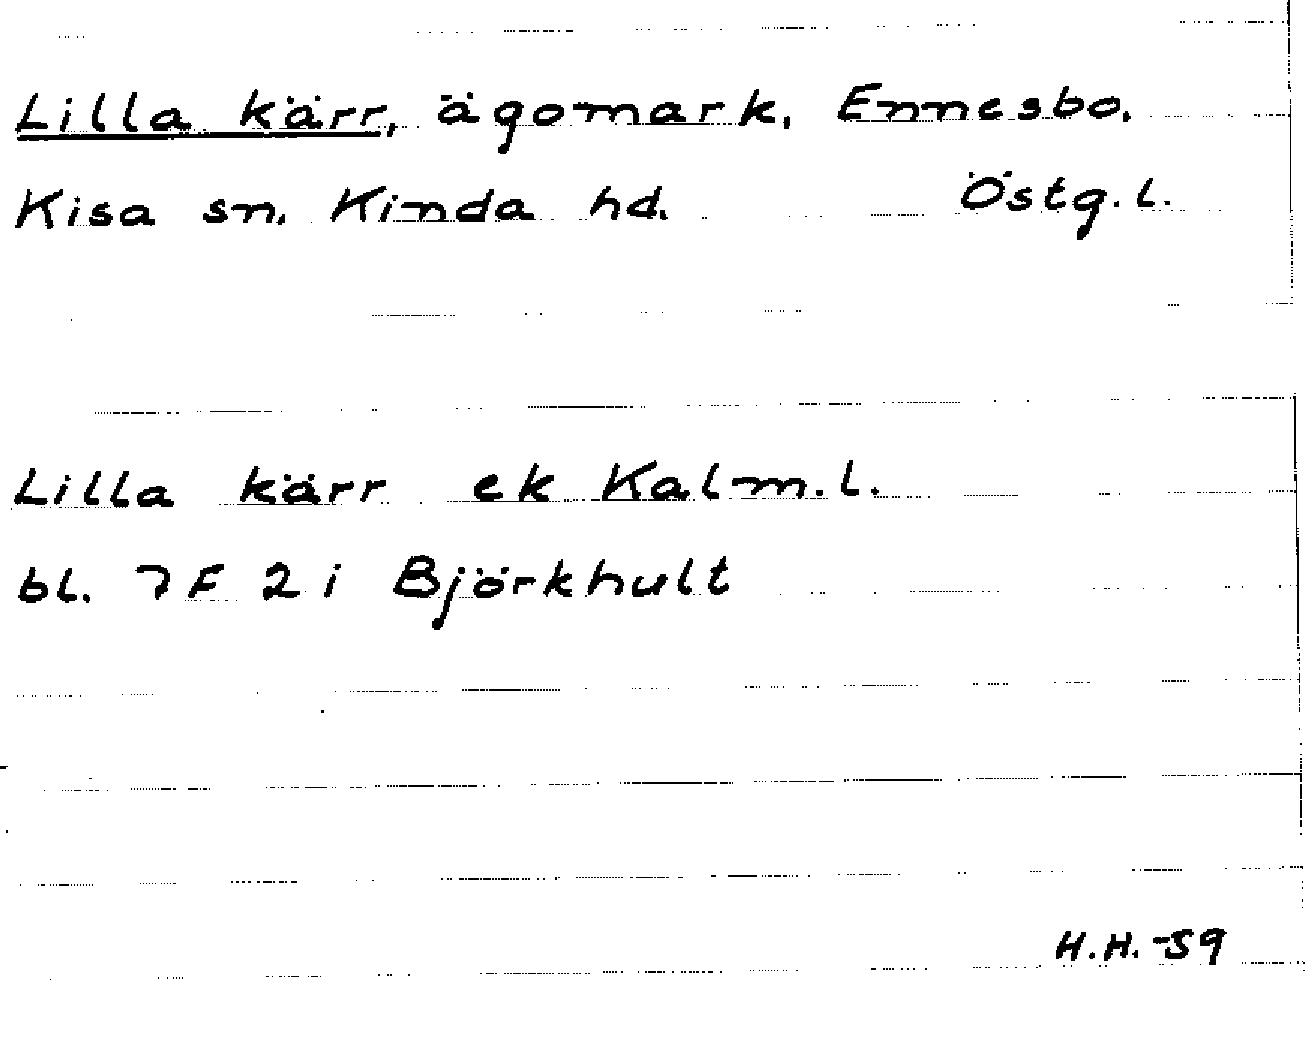 Lilla kärr, ägomark, Ennesbo.
Kisa sn. Kinda hd. Östg. l.
Lilla kärr ek Kalm. l.
bl. 7F 2i Björkhult
H.H. -59